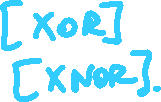 [XOR]
[XNOR].